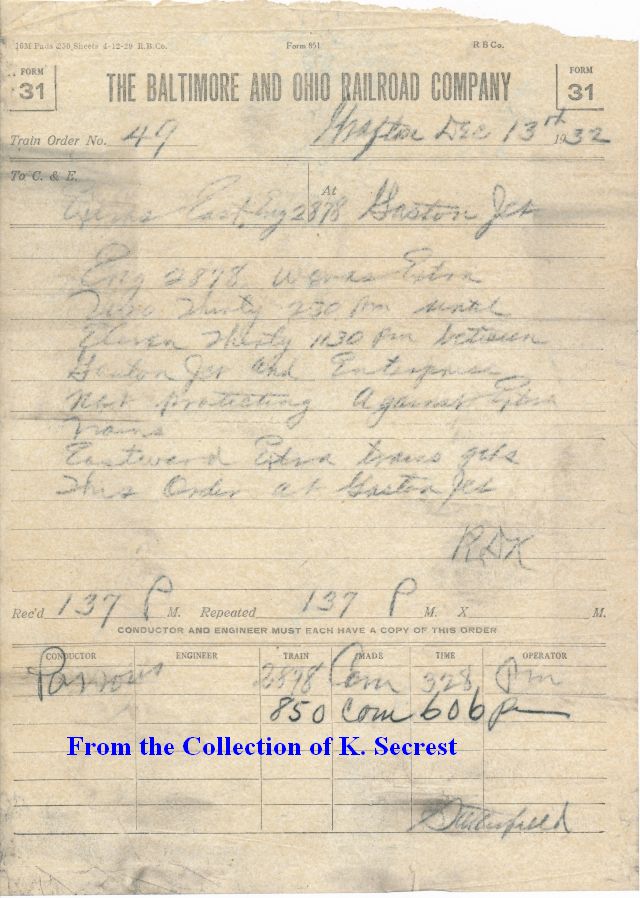 10M Pads 250 Sheets 4-12-29 R.B.Co. Form 851 R B Co.
FORM 31 THE BALTIMORE AND OHIO RAILROAD COMPANY FORM 31
Train Order No. 49 Grafton Dec 13th 1932
To C. & E. At
East Eng 2878 Gaston Jct
Eng 2878 Works Extra
Two Thirty 230 Pm until
Eleven Thirty 1130 Pm between
Gaston Jct and Enterprise
Not Protecting Against Extra
Trains
Eastward Extra trains gets
This Order at Gaston Jct
RDK
Rec'd 137 P M. Repeated 137 P M. X M.
CONDUCTOR AND ENGINEER MUST EACH HAVE A COPY OF THIS ORDER
CONDUCTOR ENGINEER TRAIN MADE TIME OPERATOR
Parsons 2878 Com 328 Pm
850 Com 606 P
From the Collection of K. Secrest
Satterfield